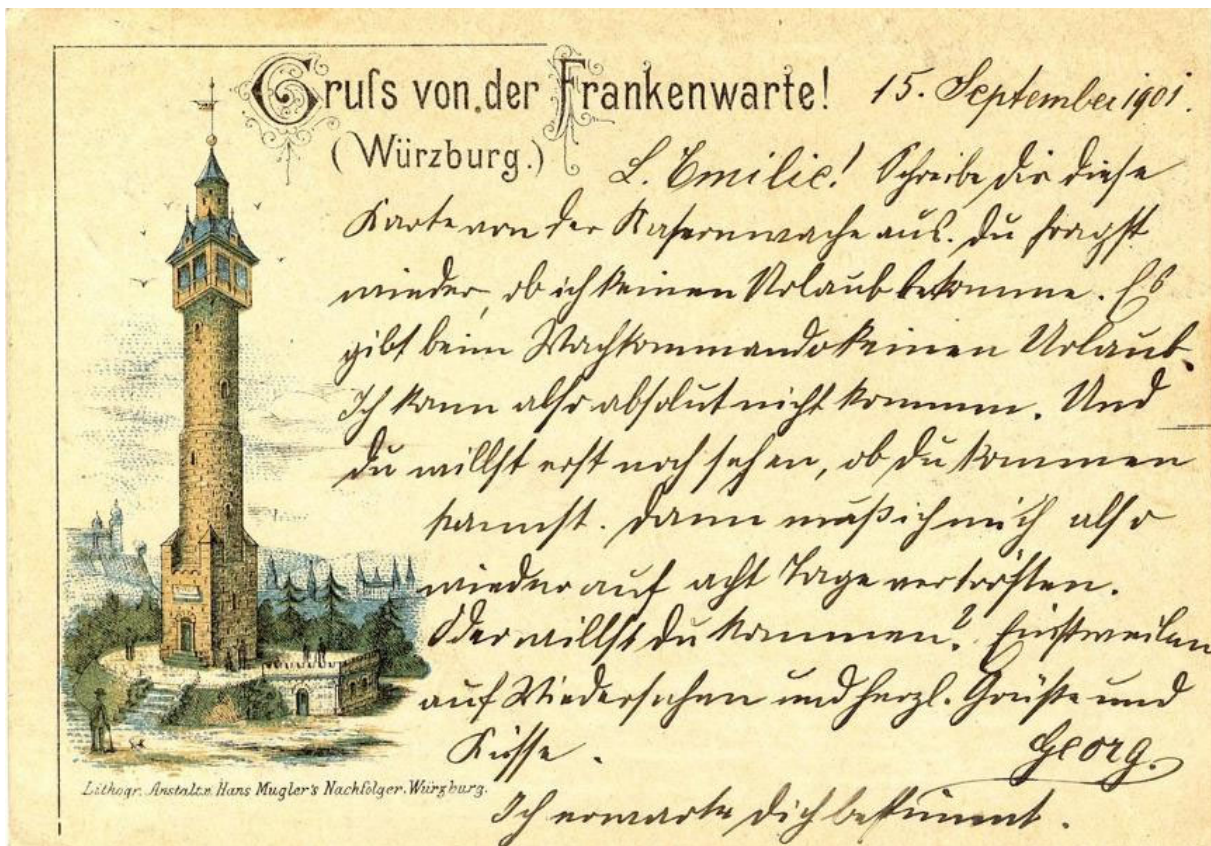 Gruſs von der Frankenwarte!
(Würzburg.)
15. September 1901.
L. Emilie! Schreibe dir diese
Karte von der Kasernwache aus. Du fragst
wieder, ob ich keinen Urlaub bekomme. Es
gibt beim Wachkommando keinen Urlaub.
Ich kann also absolut nicht kommen. Und
du willst erst noch sehen, ob du kommen
kannst. Dann muß ich mich also
wieder auf acht Tage vertrösten.
Oder willst du kommen? Einstweilen
auf Wiedersehen und herzl. Grüße und
Küsse.
Georg.
Ich erwarte dich bestimmt.
Lithogr. Anstalt v. Hans Mugler's Nachfolger. Würzburg.